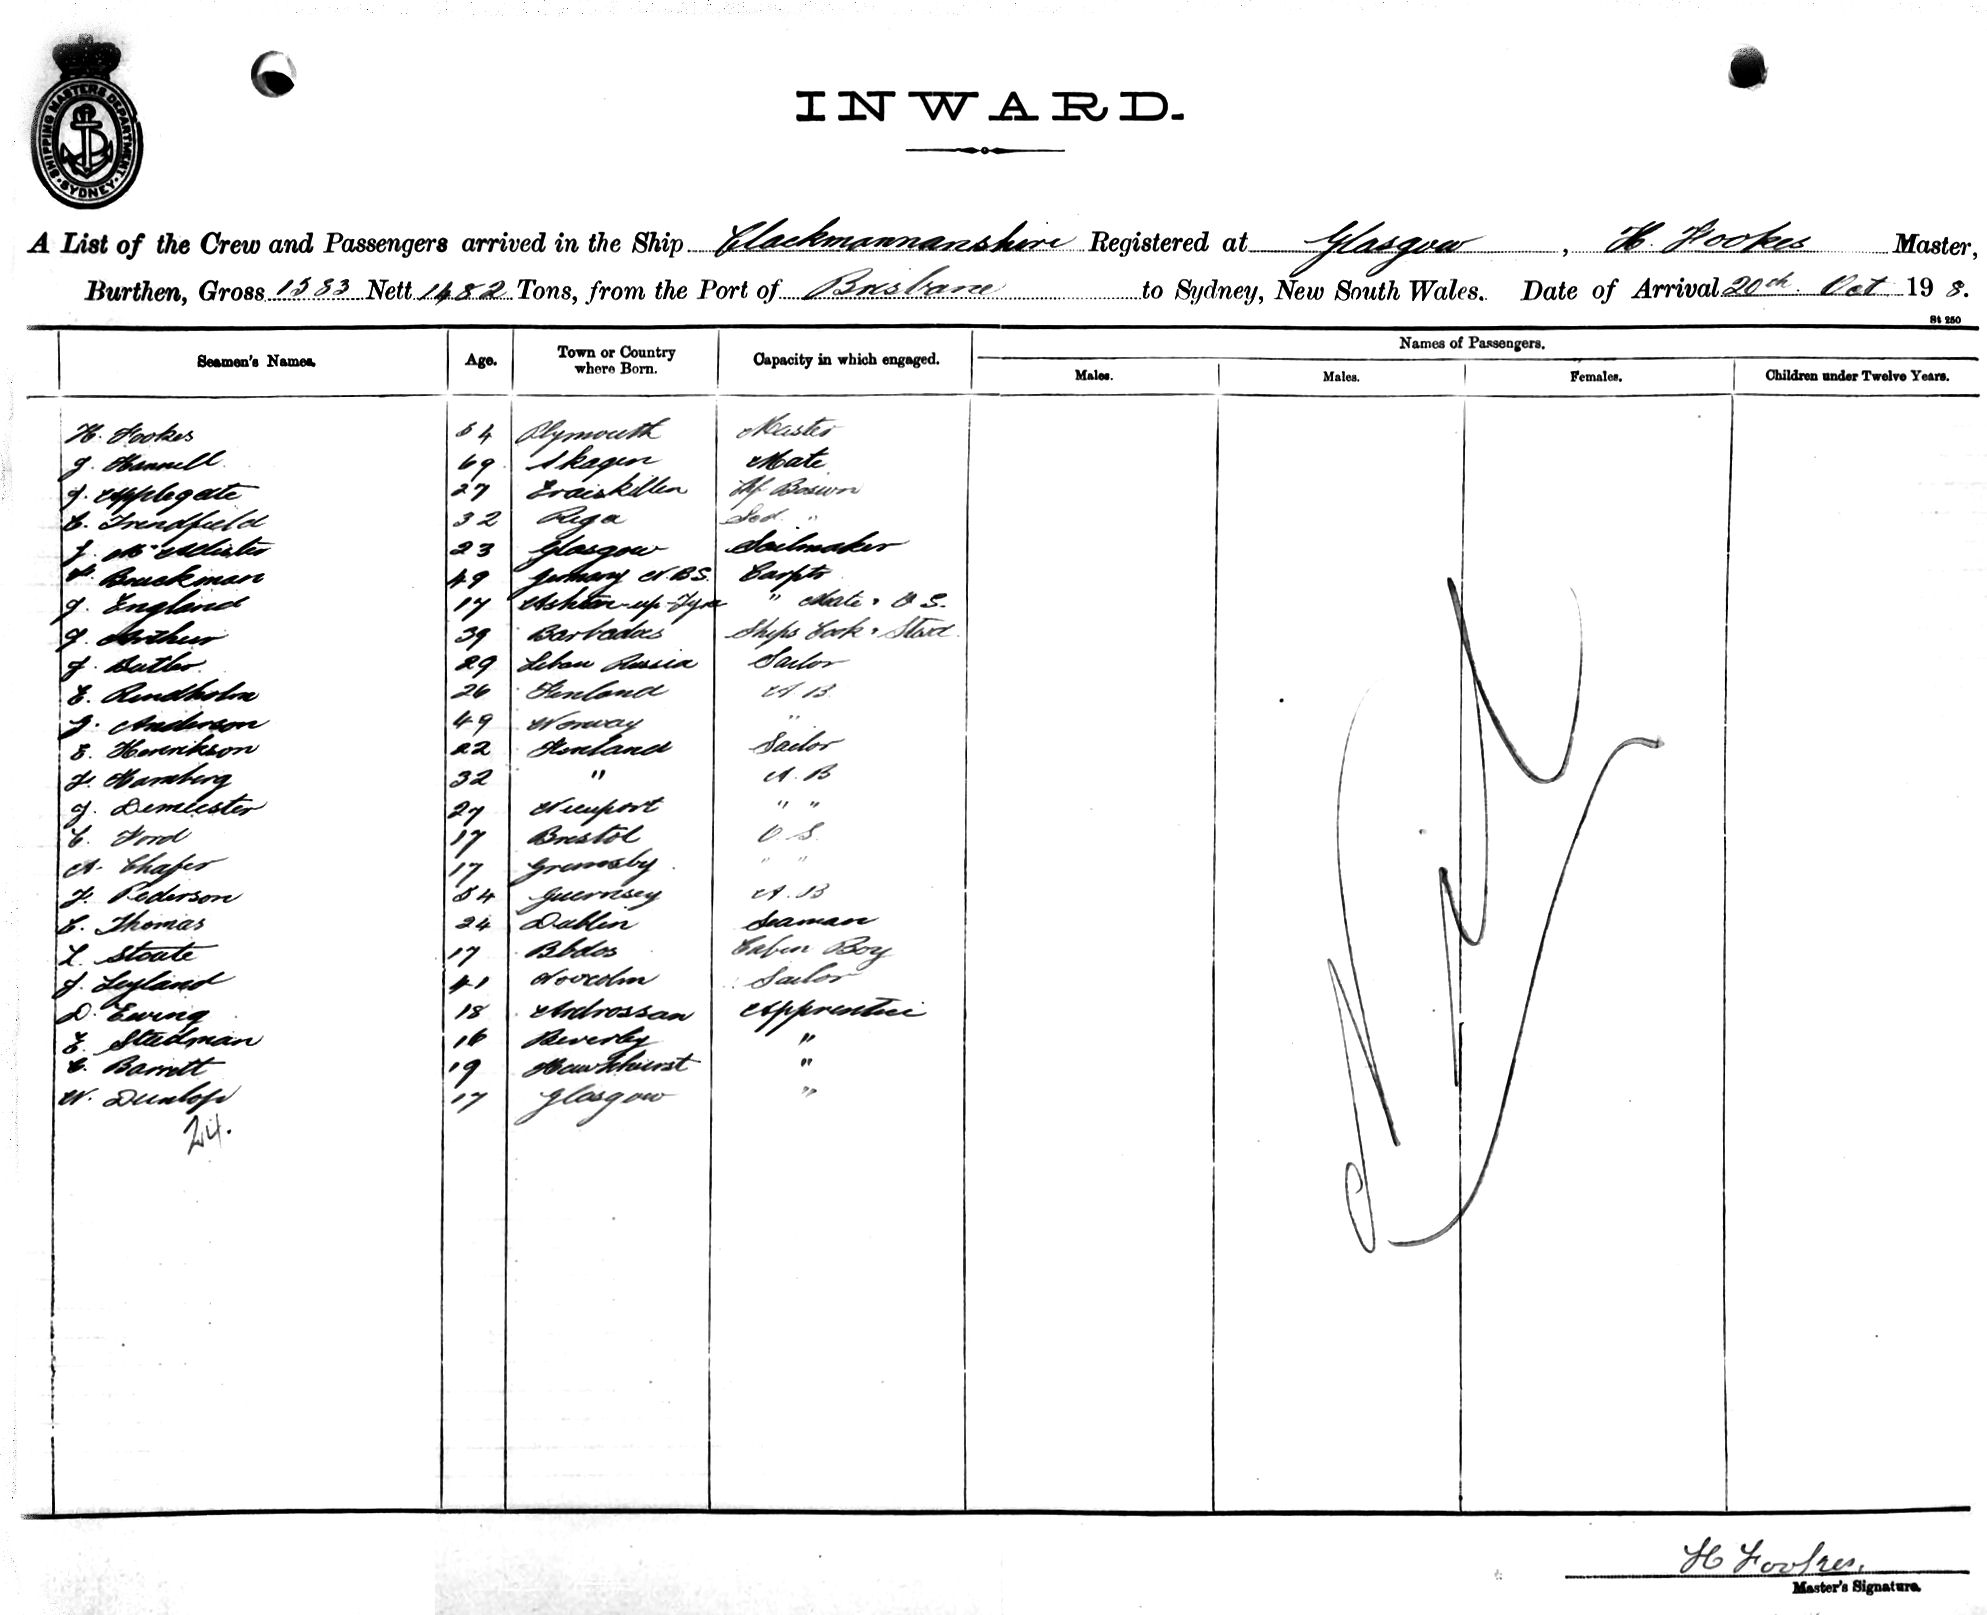 SHIPPING MASTERS DEPARTMENT
SYDNEY
INWARD.
A List of the Crew and Passengers arrived in the Ship Clackmannanshire Registered at Glasgow, H. Fookes Master,
Burthen, Gross 1583 Nett 1482 Tons, from the Port of Brisbane to Sydney, New South Wales. Date of Arrival 20th Oct 19 8.
St 250
Seamen's Names. Age. Town or Country where Born. Capacity in which engaged. Names of Passengers.
Males. Males. Females. Children under Twelve Years.
H. Fookes 54 Plymouth Master
J. Hannell 69 Skagen Mate
J. Applegate 27 Eniskillen Bosun
C. Trendfield 32 Riga Scd. "
J. McAllister 23 Glasgow Sailmaker
Bruckman 49 Germany N.B.S. Carptr
J. England 17 Ashton-up-Tyne " Mate & O S.
J. Arthur 39 Barbados Ships Cook & Stwd.
J. Butler 29 Libau Russia Sailor
E. Rindholm 26 Finland A B.
J. Anderson 49 Norway "
E. Henrikson 22 Finland Sailor
F. Hamberg 32 " A. B
J. Demeester 27 Nieuport " "
C. Ford 17 Bristol O S.
A. Chafer 17 Grimsby " "
F. Pederson 54 Guernsey A. B
C. Thomas 24 Dublin Seaman
L. Stoute 17 Bbdos Cabin Boy
J. Leyland 41 Sailor
D. Ewing 18 Ardrossan Apprentice
E. Stedman 16 Beverley "
C. Barrett 19 Hawkhurst "
W. Dunlop 17 Glasgow "
24.
Nil
H Fookes.
Master's Signature.